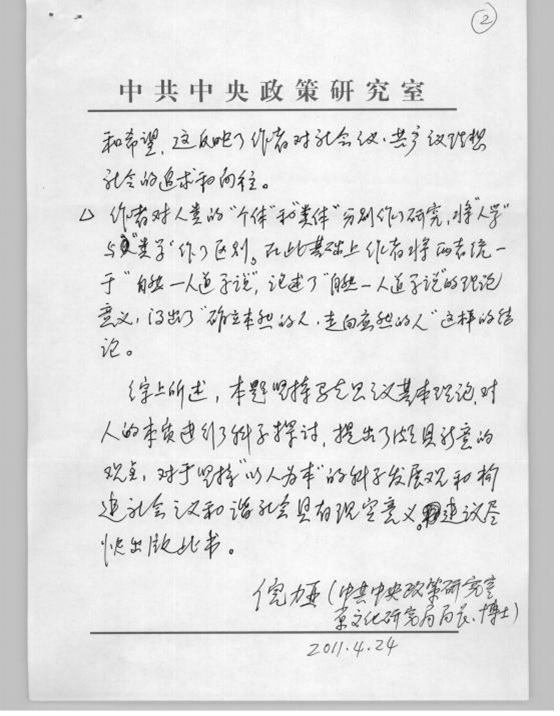 ②
中共中央政策研究室
和希望，这反映了作者对社会主义、共产主义理想
社会的追求和向往。
△ 作者对人类的“个体”和“类体”分别作了研究，将“人学”
与“类学”作了区别。在此基础上作者将两者统一
于“自然—人道学说”，论述了“自然—人道学说”的理论
意义，得出了“确立本然的人，走向应然的人”这样的结
论。
综上所述，本题坚持马克思主义基本理论，对
人的本质进行了科学探讨，提出了颇具新意的
观点，对于坚持“以人为本”的科学发展观和构
建社会主义和谐社会具有现实意义。建议尽
快出版此书。
倪力亚（中共中央政策研究室
党文化研究局局长、博士）
2011.4.24